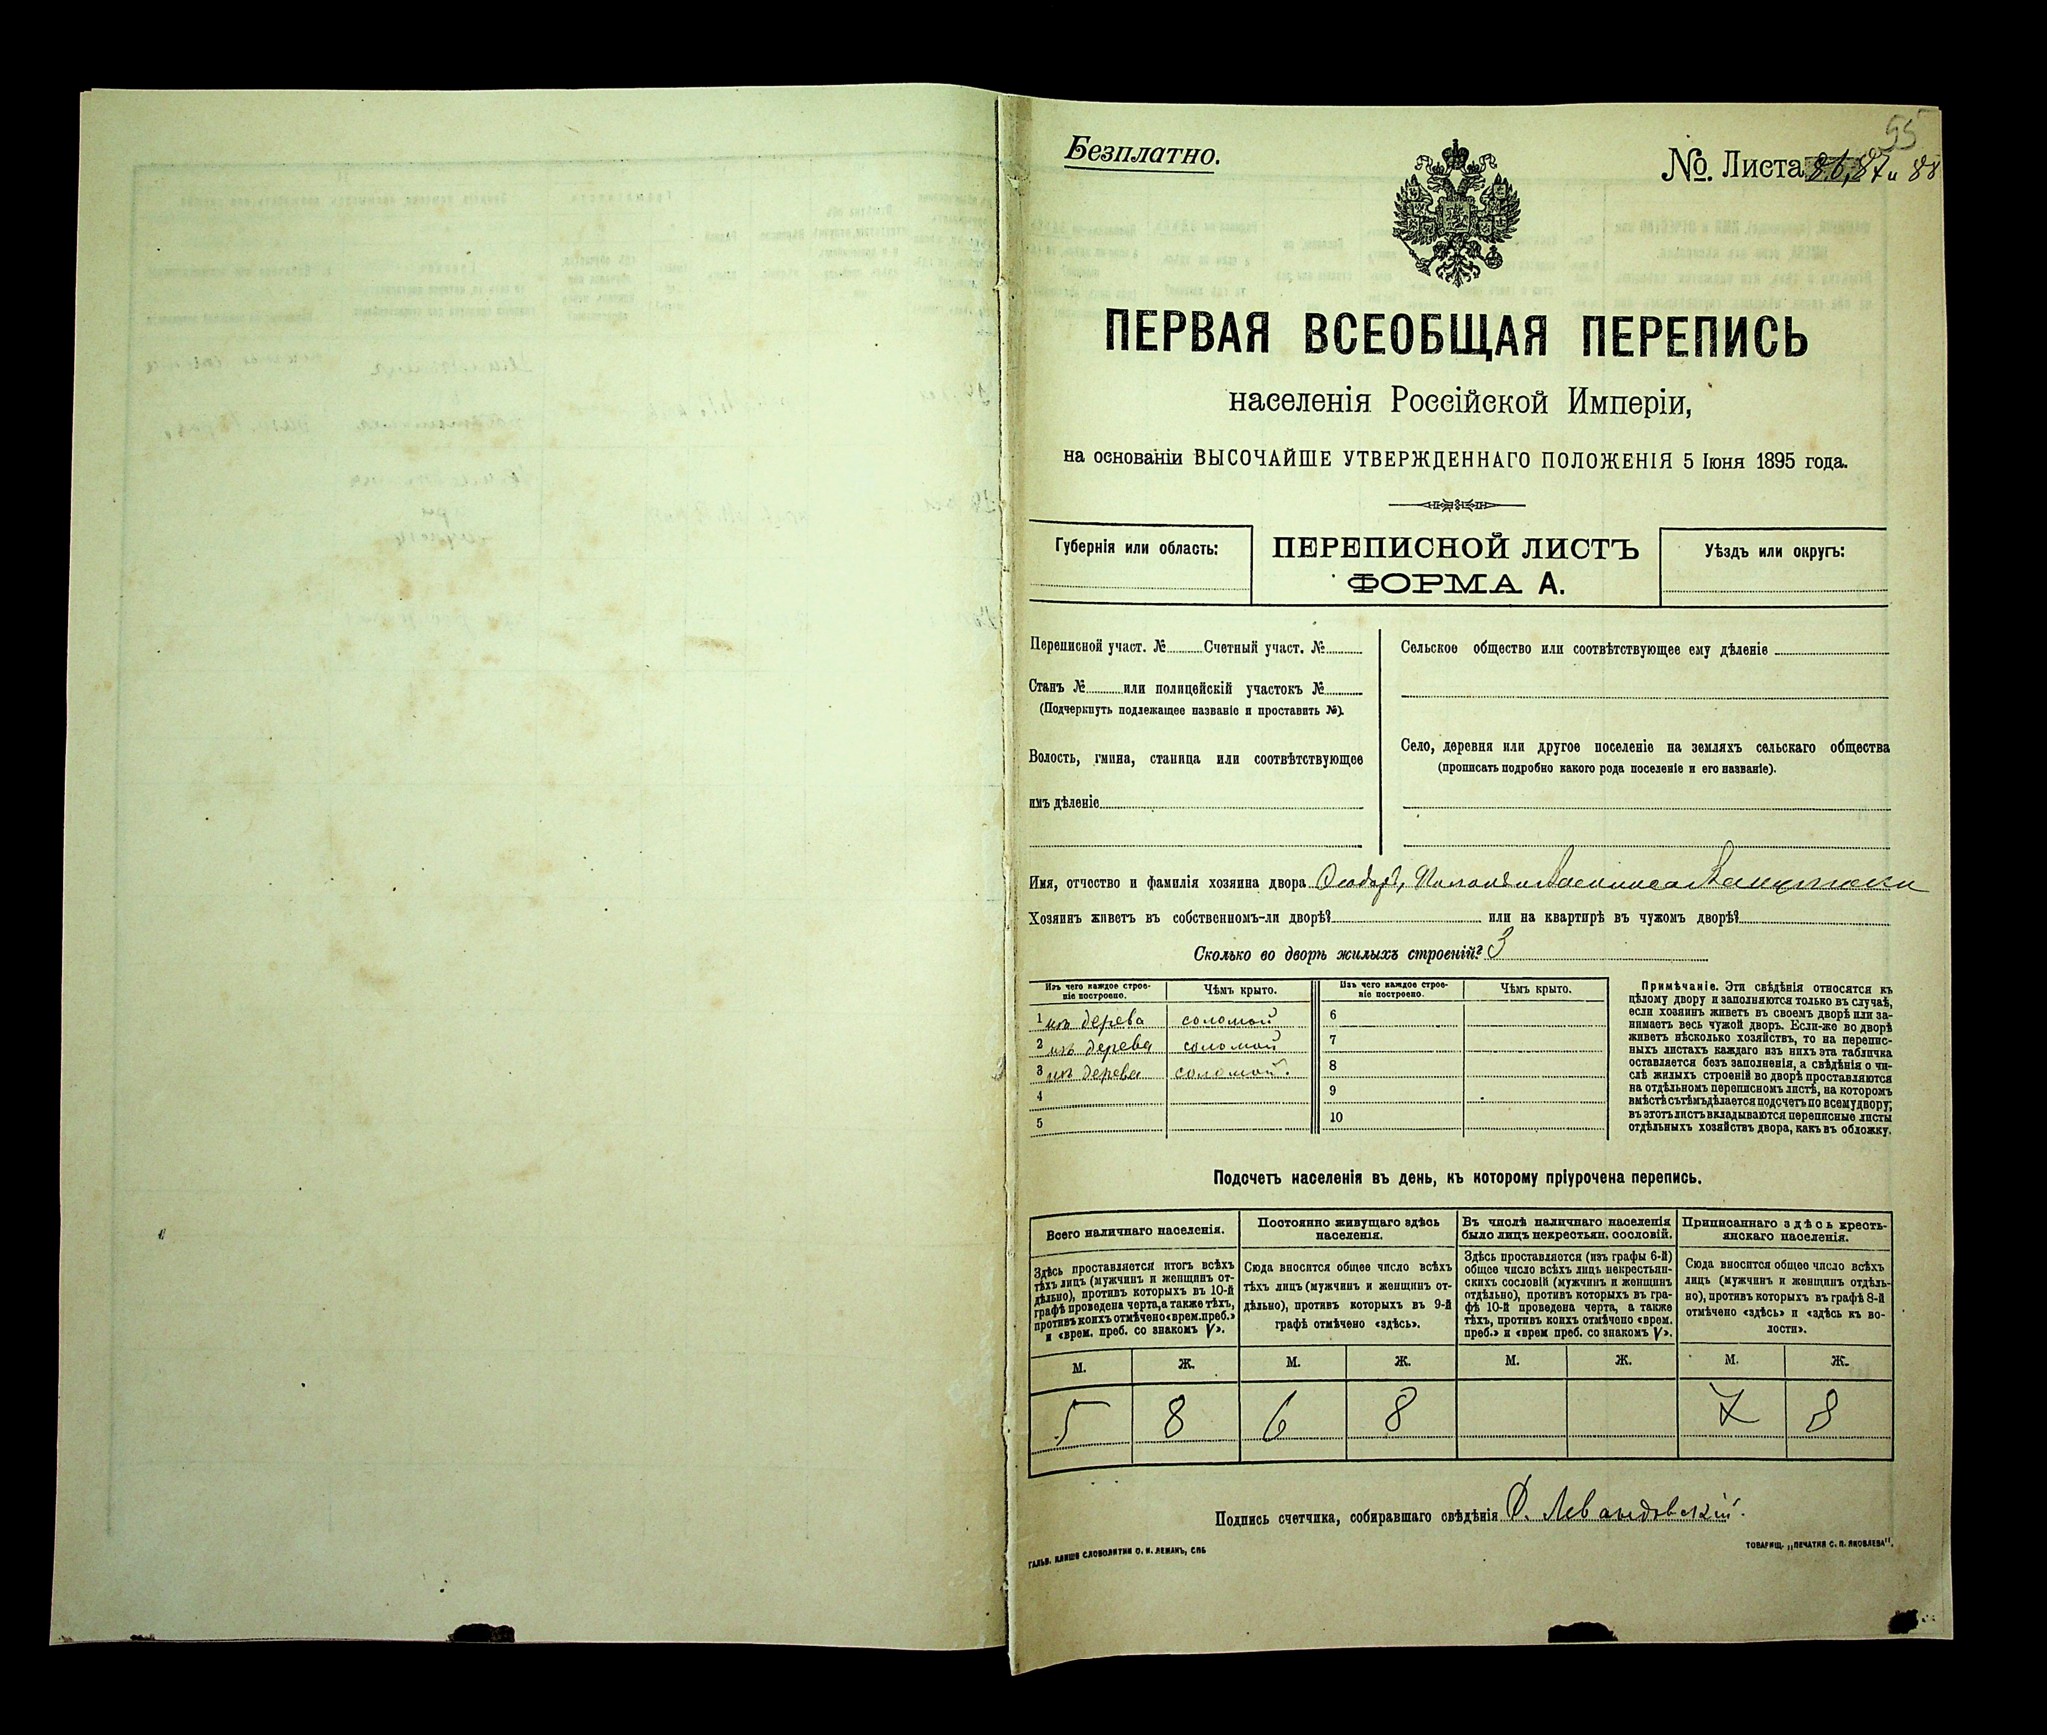 55
Безплатно.
№. Листа 86, 87 и 88
ПЕРВАЯ ВСЕОБЩАЯ ПЕРЕПИСЬ
населенія Россійской Имперіи,
на основаніи ВЫСОЧАЙШЕ УТВЕРЖДЕННАГО ПОЛОЖЕНІЯ 5 Іюня 1895 года.
Губернія или область:
ПЕРЕПИСНОЙ ЛИСТЪ
ФОРМА А.
Уѣздъ или округъ:
Переписной участ. № Счетный участ. №
Станъ № или полицейскій участокъ №
(Подчеркнуть подлежащее названіе и проставить №).
Волость, гмина, станица или соотвѣтствующее
имъ дѣленіе
Сельское общество или соотвѣтствующее ему дѣленіе
Село, деревня или другое поселеніе на земляхъ сельскаго общества
(прописать подробно какого рода поселеніе и его названіе).
Имя, отчество и фамилія хозяина двора
Хозяинъ живетъ въ собственномъ-ли дворѣ? или на квартирѣ въ чужомъ дворѣ?
Сколько во дворѣ жилыхъ строеній? 3
Изъ чего каждое строе-
ніе построено.
Чѣмъ крыто.
1 изъ дерева соломой
2 изъ дерева соломой
3 изъ дерева соломой.
4
5
Изъ чего каждое строе-
ніе построено.
Чѣмъ крыто.
6
7
8
9
10
Примѣчаніе. Эти свѣдѣнія относятся къ
цѣлому двору и заполняются только въ случаѣ,
если хозяинъ живетъ въ своемъ дворѣ или за-
нимаетъ весь чужой дворъ. Если-же во дворѣ
живетъ нѣсколько хозяйствъ, то на перепис-
ныхъ листахъ каждаго изъ нихъ эта табличка
оставляется безъ заполненія, а свѣдѣнія о чи-
слѣ жилыхъ строеній во дворѣ проставляются
на отдѣльномъ переписномъ листѣ, на которомъ
вмѣстѣ съ тѣмъ дѣлается подсчетъ по всему двору;
въ этотъ листъ вкладываются переписные листы
отдѣльныхъ хозяйствъ двора, какъ въ обложку.
Подсчетъ населенія въ день, къ которому пріурочена перепись.
Всего наличнаго населенія.
Здѣсь проставляется итогъ всѣхъ
тѣхъ лицъ (мужчинъ и женщинъ от-
дѣльно), противъ которыхъ въ 10-й
графѣ проведена черта, а также тѣхъ,
противъ коихъ отмѣчено «врем. преб.»
и «врем. преб. со знакомъ V».
М. Ж.
5 8
Постоянно живущаго здѣсь
населенія.
Сюда вносится общее число всѣхъ
тѣхъ лицъ (мужчинъ и женщинъ от-
дѣльно), противъ которыхъ въ 9-й
графѣ отмѣчено «здѣсь».
М. Ж.
6 8
Въ числѣ наличнаго населенія
было лицъ некрестьян. сословій.
Здѣсь проставляется (изъ графы 6-й)
общее число всѣхъ лицъ некрестьян-
скихъ сословій (мужчинъ и женщинъ
отдѣльно), противъ которыхъ въ гра-
фѣ 10-й проведена черта, а также
тѣхъ, противъ коихъ отмѣчено «врем.
преб.» и «врем преб. со знакомъ V».
М. Ж.
Приписаннаго здѣсь кресть-
янскаго населенія.
Сюда вносится общее число всѣхъ
лицъ (мужчинъ и женщинъ отдѣль-
но), противъ которыхъ въ графѣ 8-й
отмѣчено «здѣсь» и «здѣсь къ во-
лости».
М. Ж.
7 8
Подпись счетчика, собиравшаго свѣдѣнія Ф. Левандовскій.
ГАЛЬВ. КЛИШЕ СЛОВОЛИТНИ О. И. ЛЕМАНЪ, СПБ
ТОВАРИЩ. „ПЕЧАТНЯ С. П. ЯКОВЛЕВА".